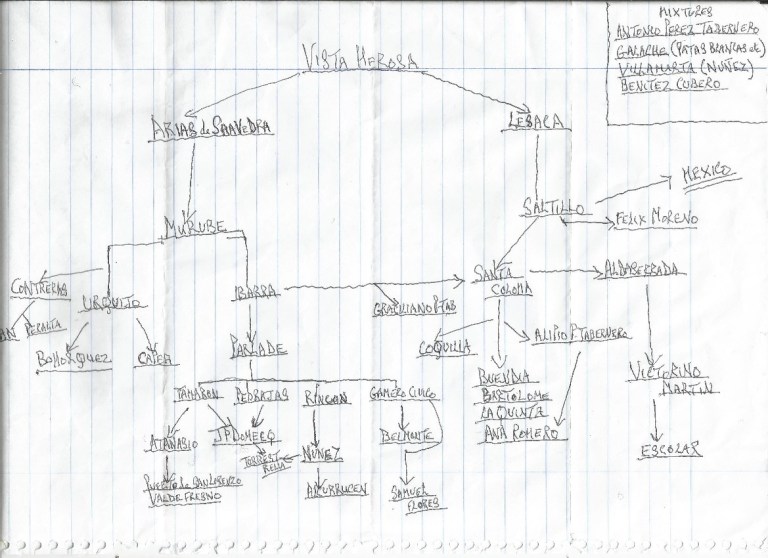 MIXTURES
ANTONIO PEREZ TABERNERO
GALACHE (PATAS BLANCAS etc)
VILLAMARTA (NUÑEZ)
BENITEZ CUBERO
VISTA HEROSA
ARIAS de SAAVEDRA
LESACA
MEXICO
SALTILLO
FELIX MORENO
MURUBE
CONTRERAS
URQUIJO
IBARRA
SANTA
COLOMA
ALBASERRADA
GRACILIANO P TAB
PERALTA
BOHORQUEZ
CAPEA
PARLADE
COQUILLA
ALIPIO P. TABERNERO
TAMARON
PEDRAJAS
RINCON
GAMERO CIVICO
BUENDIA
BARTOLOME
LA QUINTA
ANA ROMERO
VICTORINO
MARTIN
ATANASIO
JP DOMECQ
TORREST
RELLA
NUÑEZ
BELMONTE
ESCOLAR
PUERTO de SAN LORENZO
VALDEFRESNO
ALCURRUCEN
SAMUEL
FLORES